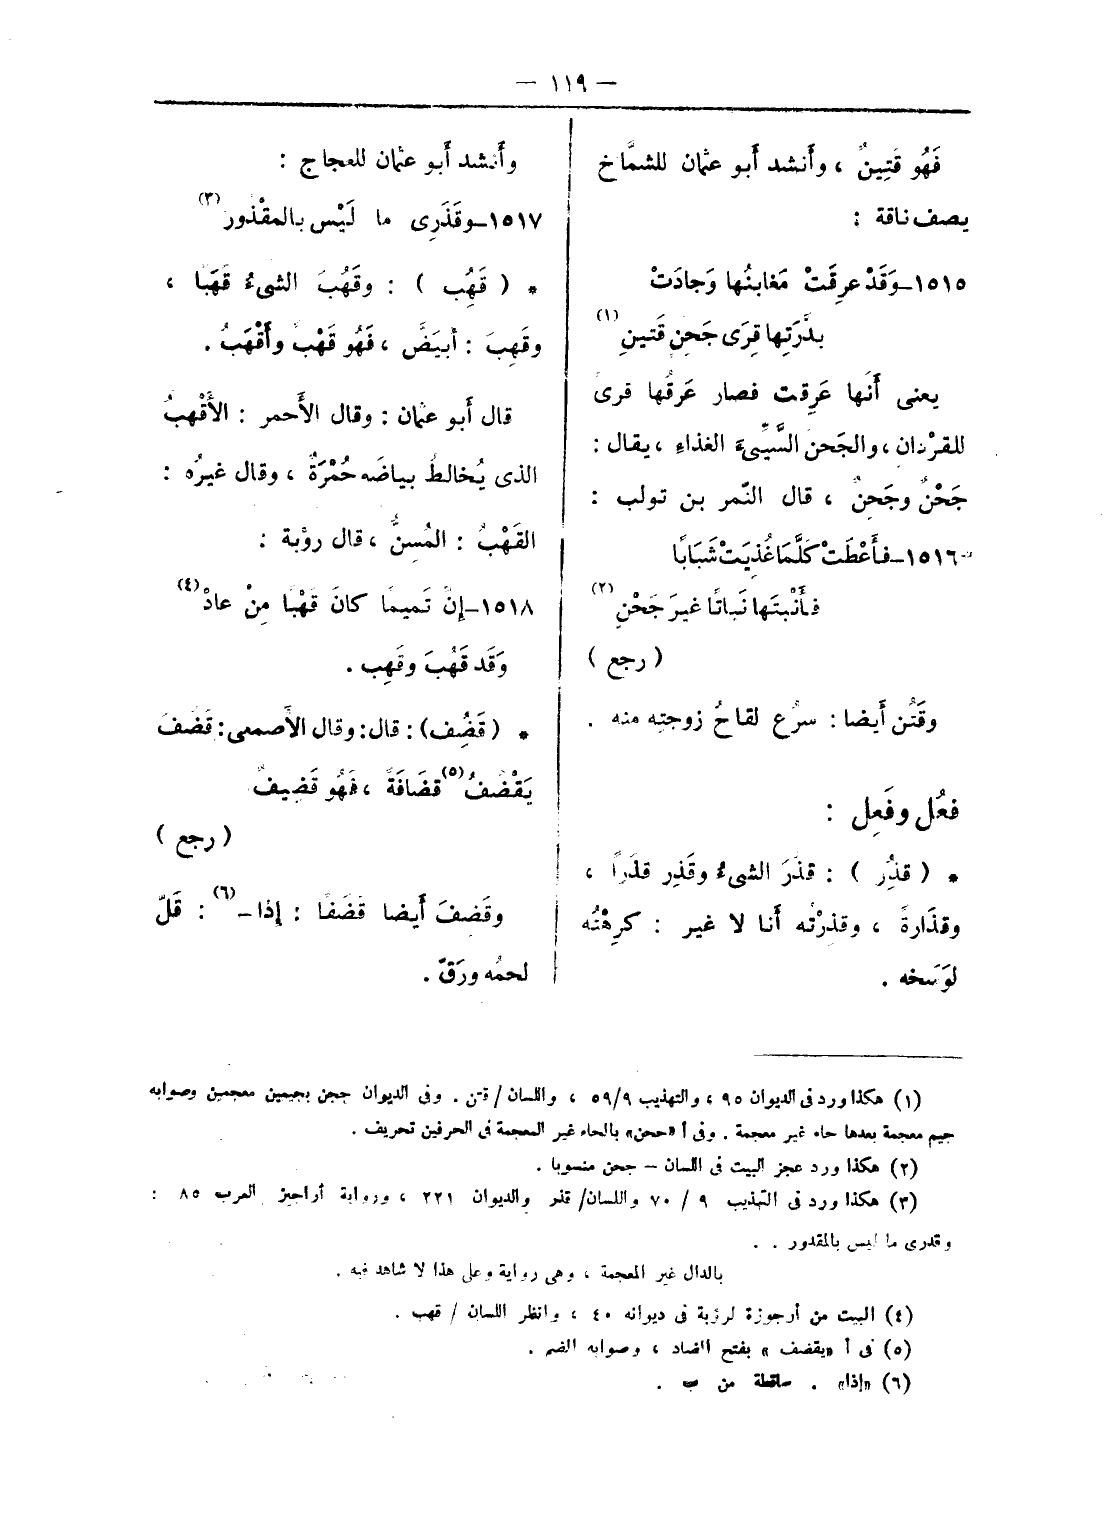 — ١١٩ —
فَهُو قَتِينٌ ، وأَنشد أَبو عثمان للشمَّاخ
يصف ناقة :
١٥١٥ــ وَقَدْ عرِقَتْ مَغابنُها وَجادَتْ
بِدَرَّتِها قِرَى جَحِنٍ قَتينِ (١)
يعنى أَنها عَرِقت فصار عَرقُها قرىً
للقرْدان ، والجَحنُ السَّيِّىءَ الغذاءِ ، يقال :
جَحْنٌ وجَحِنٌ ، قال النَّمر بن تولب :
١٥١٦ــ فأَعْطَتْ كلَّمَا غُذِيَتْ شَبَابًا
فأَنْبتَها نَباتًا غيرَ جَحْنِ (٢)
( رجع )
وقَتُن أَيضا : سرُع لقاحُ زوجتِه منه .
فعُل وفَعِل :
* ( قذُِر ) : قذُرَ الشىءُ وقَذِر قذَراً ،
وقذَارةً ، وقذِرْتُه أَنا لا غير : كرِهْتُه
لوَسَخه .
وأَنشد أَبو عثمان للعجاج :
١٥١٧ــ وقَذَرِى ما لَيْس بالمقْذور (٣)
* ( قَهُِب ) : وقَهُبَ الشىءُ قَهَبًا ،
وقَهِبَ : أبيَضَّ ، فَهُو قَهْبٌ وأَقْهَبُ .
قال أَبو عثمان : وقال الأَحمر : الأَقْهبُ
الذى يُخالطُ بياضَه حُمْرَةٌ ، وقال غيرُه :
القَهْبُ : المُسِنُّ ، قال رؤبة :
١٥١٨ــ إِنَّ تَمِيمًا كانَ قَهْبًا مِنْ عادْ (٤)
وَقَد قَهُبَ وقَهِب .
* ( قَضُِف ) : قال : وقال الأَصمعى : قَضُفَ
يَقْضُفُ (٥) قضَافَةً ، فَهُو قَضِيفٌ
( رجع )
وقَضِفَ أَيضا قَضَفًا : إِذا ــ (٦) : قَلَّ
لحمُه ورَقّ .
(١) هكذا ورد فى الديوان ٩٥ ، والتهذيب ٥٩/٩ ، واللسان / قتن . وفى الديوان ججن بجيمين معجمين وصوابه
جيم معجمة بعدها حاء غير معجمة . وفى أ «ححن» بالحاء غير المعجمة فى الحرفين تحريف .
(٢) هكذا ورد عجز البيت فى اللسان – جحن منسوبا .
(٣) هكذا ورد فى التهذيب ٩ / ٧٠ واللسان/ قذر والديوان ٢٢١ ، ورواية أراجيز العرب ٨٥ :
وقدرى ما ليس بالمقدور . .
بالدال غير المعجمة ، وهى رواية وعلى هذا لا شاهد فيه .
(٤) البيت من أرجوزة لرؤبة فى ديوانه ٤٠ ، وانظر اللسان / قهب .
(٥) فى أ «يقضف » بفتح الضاد ، وصوابه الضم .
(٦) «إذا» . ساقطة من ب .